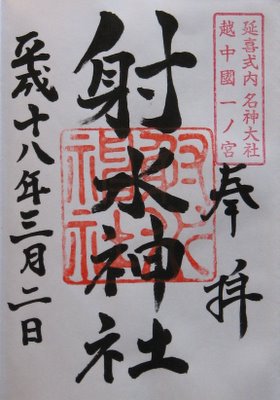 延喜式内名神大社
越中國一ノ宮
奉拝
射水神社
射水神社
平成十八年三月二日